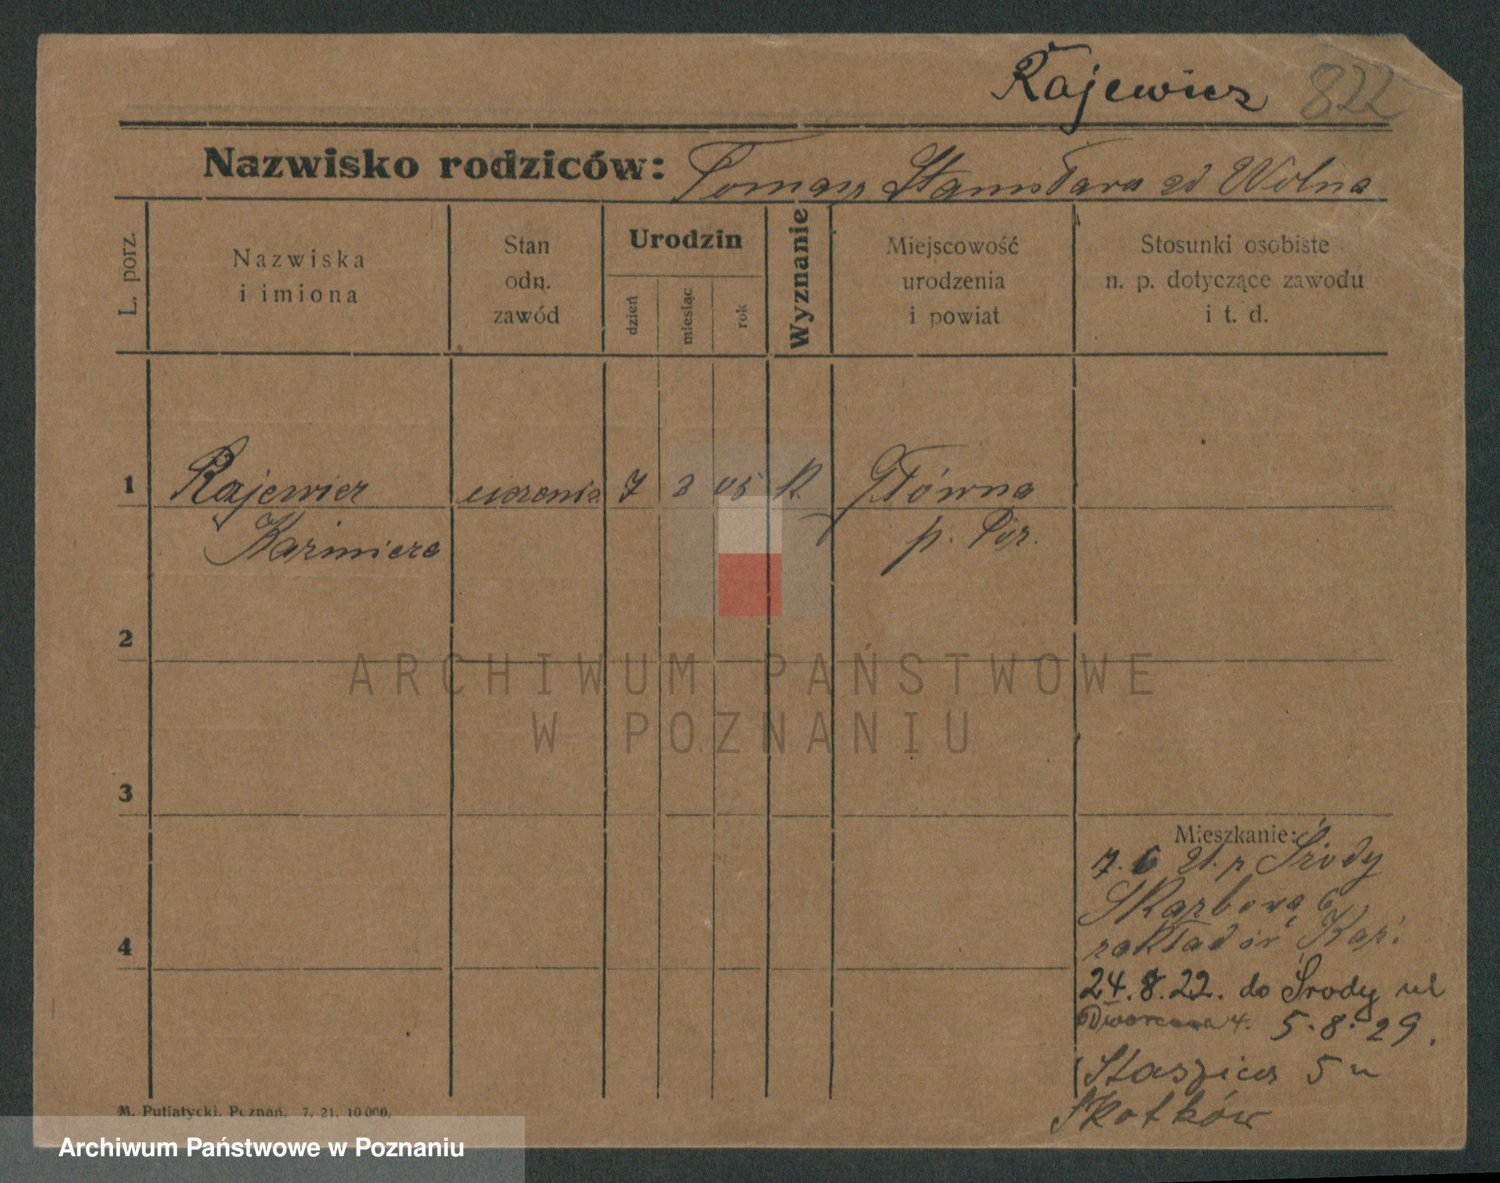 Rajewicz 822
Nazwisko rodziców: Tomasz Stanisława zd Wolna
L. porz.
Nazwiska
i imiona
Stan
odn.
zawód
Urodzin
dzień
miesiąc
rok
Wyznanie
Miejscowość
urodzenia
i powiat
Stosunki osobiste
n. p. dotyczące zawodu
i t. d.
1 Rajewicz uczenia 7 3 05 k. Główna
Kazimiera p. Poz.
2
ARCHIWUM PAŃSTWOWE
W POZNANIU
3
Mieszkanie:
7. 6 21. p Środy
Skarbowa 6
4
24.8.22. do Środy ul
Dworcowa 4. 5.8.29.
Staszica 5 u
M. Putiatycki, Poznań. 7. 21. 10 000.
Archiwum Państwowe w Poznaniu